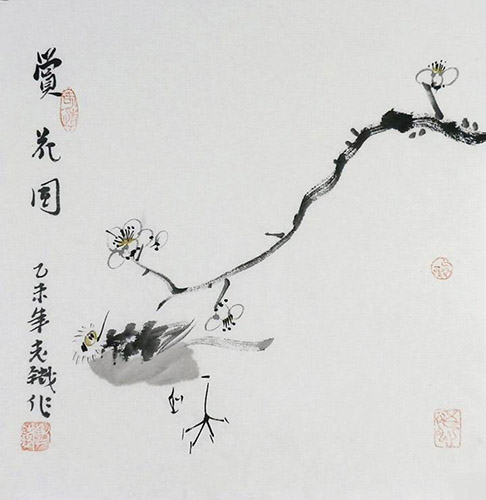 賞花图
乙未年老鐵作